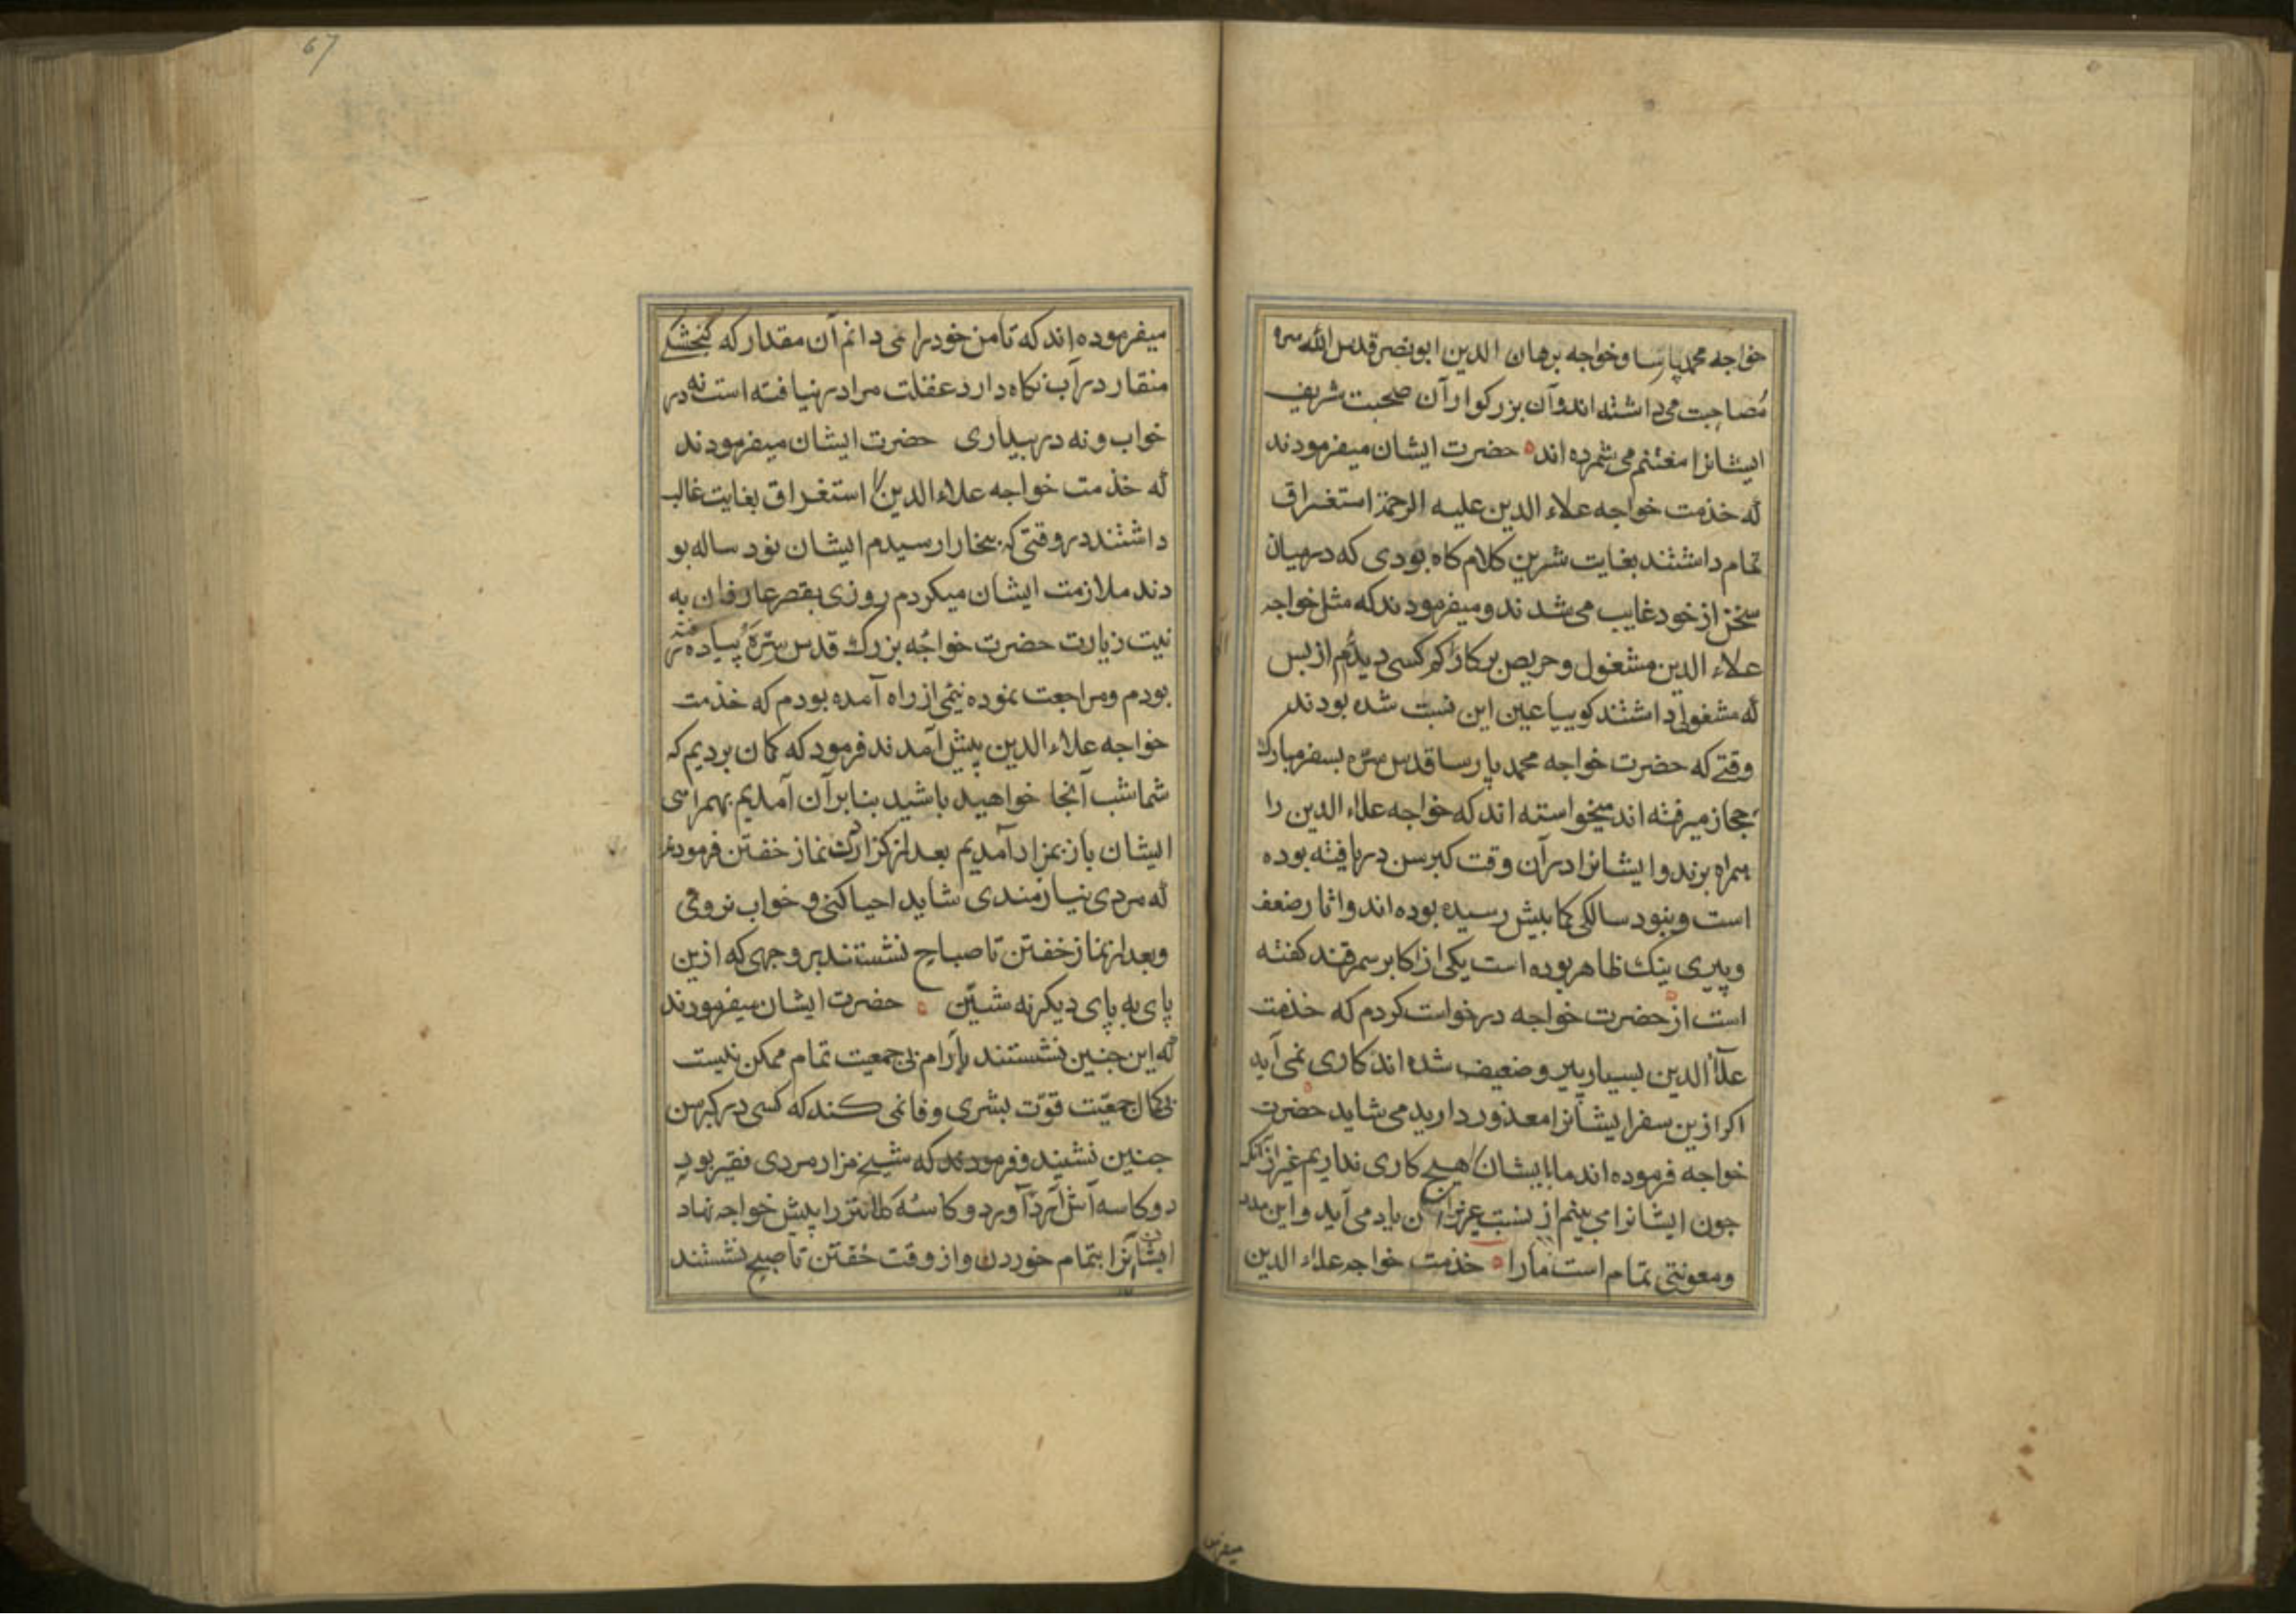 خواجه محمد پارسا و خواجه برهان الدین ابو نصر قدس الله سره
مُصاحبت می داشته اند و آن بزرکوار آن صحبت شریف
ایشانرا مغتنم می شمرده اند حضرت ایشان میفرمودند
که خذمت خواجه علاء الدین علیه الرحمة استغراق
تمام داشتند بغایت شرین کلام کاه بودی که در میان
سخن از خود غایب می شدند و میفرمودند که مثل خواجه
علاء الدین مشغول و حریص بر کار کم کسی دیدم از بس
که مشغولی داشتند کوییا عین این نسبت شده بودند
وقتی که حضرت خواجه محمد پارسا قدس سره بسفر مبارک
حجاز میرفته اند میخواسته اند که خواجه علاء الدین را
همراه برند و ایشانرا در آن وقت کبر سن دریافته بوده
است و بنود سالکی کما بیش رسیده بوده اند و اثار ضعف
و پیری نیک ظاهر بوده است یکی از اکابر سمرقند کفته
است از حضرت خواجه درخواست کردم که خذمت
علاء الدین بسیار پیر و ضعیف شده اند کاری نمی آید
اکر ازین سفر ایشانرا معذور دارید می شاید حضرت
خواجه فرموده اند ما با ایشان هیچ کاری نداریم غیر از آنکه
جون ایشانرا می بینم از نسبت عزیزان یاد می آید و این مدد
و معونتی تمام است مارا خذمت خواجه علاء الدین
میفرمو
67
میفرموده اند که تا من خود را می دانم آن مقدار که کنجشکی
منقار در آب نکاه دارد غفلت مرا در نیافته است نه در
خواب و نه در بیداری حضرت ایشان میفرمودند
که خذمت خواجه علاء الدین را استغراق بغایت غالب
داشتند در وقتی که ببخارا رسیدم ایشان نود ساله بو
دند ملازمت ایشان میکردم روزی بقصر عارفان به
نیت زیارت حضرت خواجه بزرک قدس سره پیاده رفته
بودم و مراجعت نموده نیمی از راه آمده بودم که خذمت
خواجه علاء الدین پیش آمدند فرمود که کمان بردیم که
شما شب آنجا خواهید باشید بنابر آن آمدیم بهمراهی
ایشان باز بمزار آمدیم بعد از کزاردن نماز خفتن فرمودند
که مردی نیازمندی شاید احیا کنی و خواب نروی
و بعد از نماز خفتن تا صباح نشستند بر وجهی که ازین
پای به پای دیکر نه نشستن حضرت ایشان میفرمودند
که این جنین نشستند بآرام بی جمعیت تمام ممکن نیست
بی کمال جمعیت قوّت بشری وفا نمی کند که کسی در کبر سن
جنین نشیند و فرمودند که شیخ مزار مردی فقیر بود
دو کاسه آش آرد آورد و کاسه کلانتر را پیش خواجه نهاد
ایشان آنرا بتمام خوردن و از وقت خفتن تا صبح نشستند